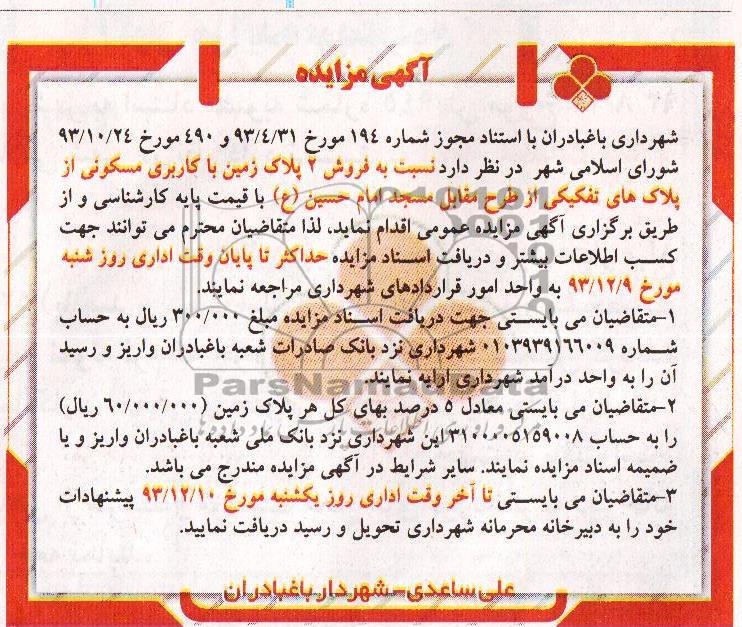 آگهی مزایده
شهرداری باغبادران با استناد مجوز شماره ۱۹۴ مورخ ۹۳/۴/۳۱ و ۴۹۰ مورخ ۹۳/۱۰/۲۴
شورای اسلامی شهر در نظر دارد نسبت به فروش ۲ پلاک زمین با کاربری مسکونی از
پلاک های تفکیکی از طرح مقابل مسجد امام حسین (ع) با قیمت پایه کارشناسی و از
طریق برگزاری آگهی مزایده عمومی اقدام نماید، لذا متقاضیان محترم می توانند جهت
کسب اطلاعات بیشتر و دریافت اسناد مزایده حداکثر تا پایان وقت اداری روز شنبه
مورخ ۹۳/۱۲/۹ به واحد امور قراردادهای شهرداری مراجعه نمایند.
۱-متقاضیان می بایستی جهت دریافت اسناد مزایده مبلغ ۳۰۰/۰۰۰ ریال به حساب
شماره ۰۱۰۳۹۳۹۱۶۶۰۰۹ شهرداری نزد بانک صادرات شعبه باغبادران واریز و رسید
آن را به واحد درآمد شهرداری ارایه نمایند.
ParsNamadData
۲-متقاضیان می بایستی معادل ۵ درصد بهای کل هر پلاک زمین (۶۰/۰۰۰/۰۰۰ ریال)
را به حساب ۳۱۰۰۰۰۵۱۵۹۰۰۸ این شهرداری نزد بانک ملی شعبه باغبادران واریز و یا
ضمیمه اسناد مزایده نمایند. سایر شرایط در آگهی مزایده مندرج می باشد.
۳-متقاضیان می بایستی تا آخر وقت اداری روز یکشنبه مورخ ۹۳/۱۲/۱۰ پیشنهادات
خود را به دبیرخانه محرمانه شهرداری تحویل و رسید دریافت نمایید.
علی ساعدی-شهردار باغبادران